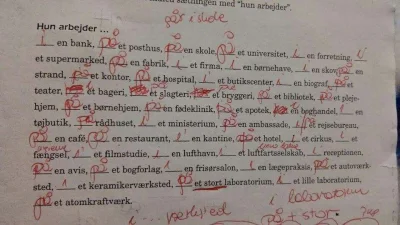 sætningen med "hun arbejder".
på i skole
Hun arbejder ...
i en bank, på et posthus, på en skole, på et universitet, i en forretning, i
et supermarked, på en fabrik, i et firma, i en børnehave, i en skov, på en
strand, på et kontor, på et hospital, i et butikscenter, i en biograf, på et
teater, i et bageri, i et slagteri, på et bryggeri, på et bibliotek, på et pleje-
hjem, på et børnehjem, på en fødeklinik, på et apotek, i en boghandel, i en
tøjbutik, på rådhuset, i et ministerium, på en ambassade, i et rejsebureau,
på en café, på en restaurant, i en kantine, på et hotel, i et cirkus, i et
fængsel, i et filmstudie, i en lufthavn, i et luftfartsselskab, i receptionen,
på en avis, på et bogforlag, i en frisørsalon, i en lægepraksis, på et autoværk-
sted, i et keramikerværksted, på et stort laboratorium, i et lille laboratorium,
på et atomkraftværk.
i laboratorium
i ... værksted
på + stor